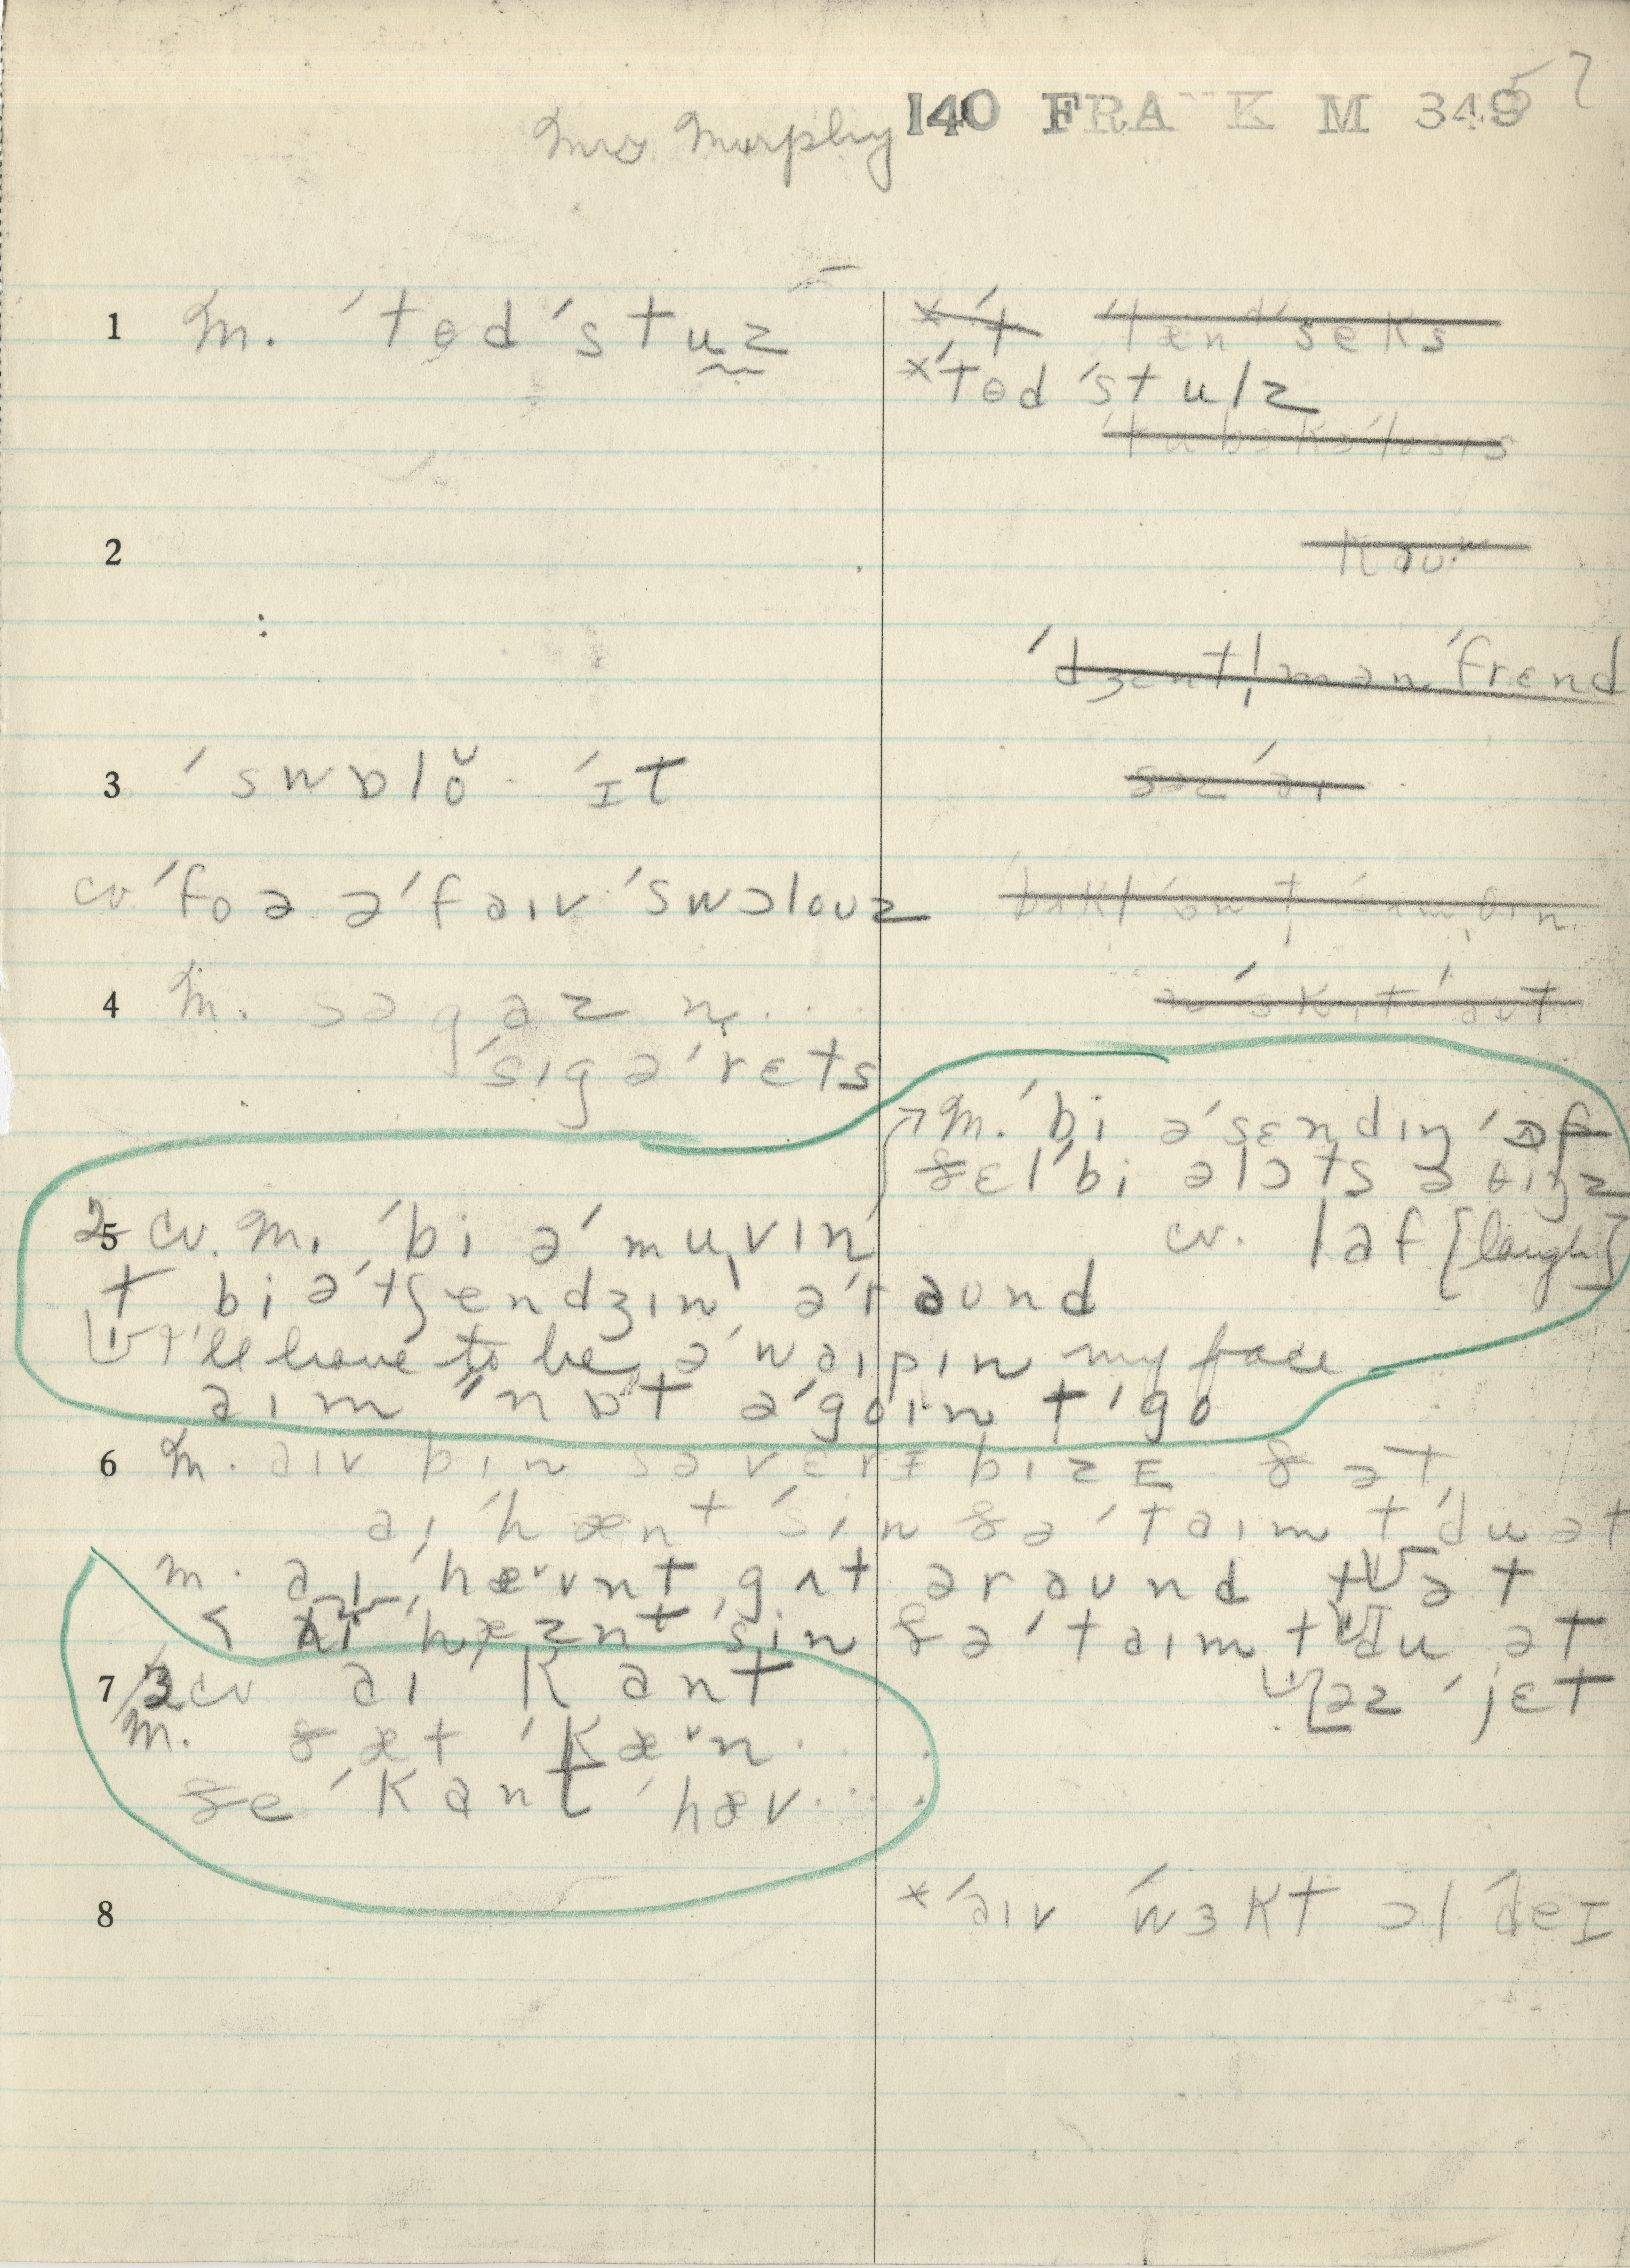 Mrs Murphy 140 FRA K M 349 57
1 M. ˈtɵd ˈstuz
ˈtænd ˈseks
×ˈtɵd ˈstulz
2
ˈdʒɛntl̩mən ˈfrɛnd
3 ˈswɒlŏ ˈɪt
cv. ˈfoə əˈfaɪv ˈswɔloʊz
4 M. səgaz n̩ . . . .
ˈsɪgəˈrɛts
↗ M. ˈbi əˈsɛndɪŋ ˈɔf
ðɛl ˈbi ə lɔts ə θɪŋz
5 2 cv. M. ˈbi əˈmuvɪn
cv. laf [laugh]
t bi əˈtʃendʒɪn əˈraʊnd
I'll have to be əˈwaɪpɪn my face
aɪm ˈnɒt əˈgoɪn tˈgo
6 M. aɪv bɪn sə vɛrɪ bɪzɪ ðət
aɪ ˈhænt ˈsin ðəˈtaɪm tˈdu ət
M. aɪ ˈhævnt gʌt əraʊnd t ət
ˈhæznt ˈsin ðəˈtaɪm t du ət
7 3 cv aɪ kant
əz ˈjɛt
M. ðæt ˈkæn . . . .
ðe ˈkant ˈhæv . . . .
8 × ˈaɪv ˈwɜkt ɔl ˈdeɪ